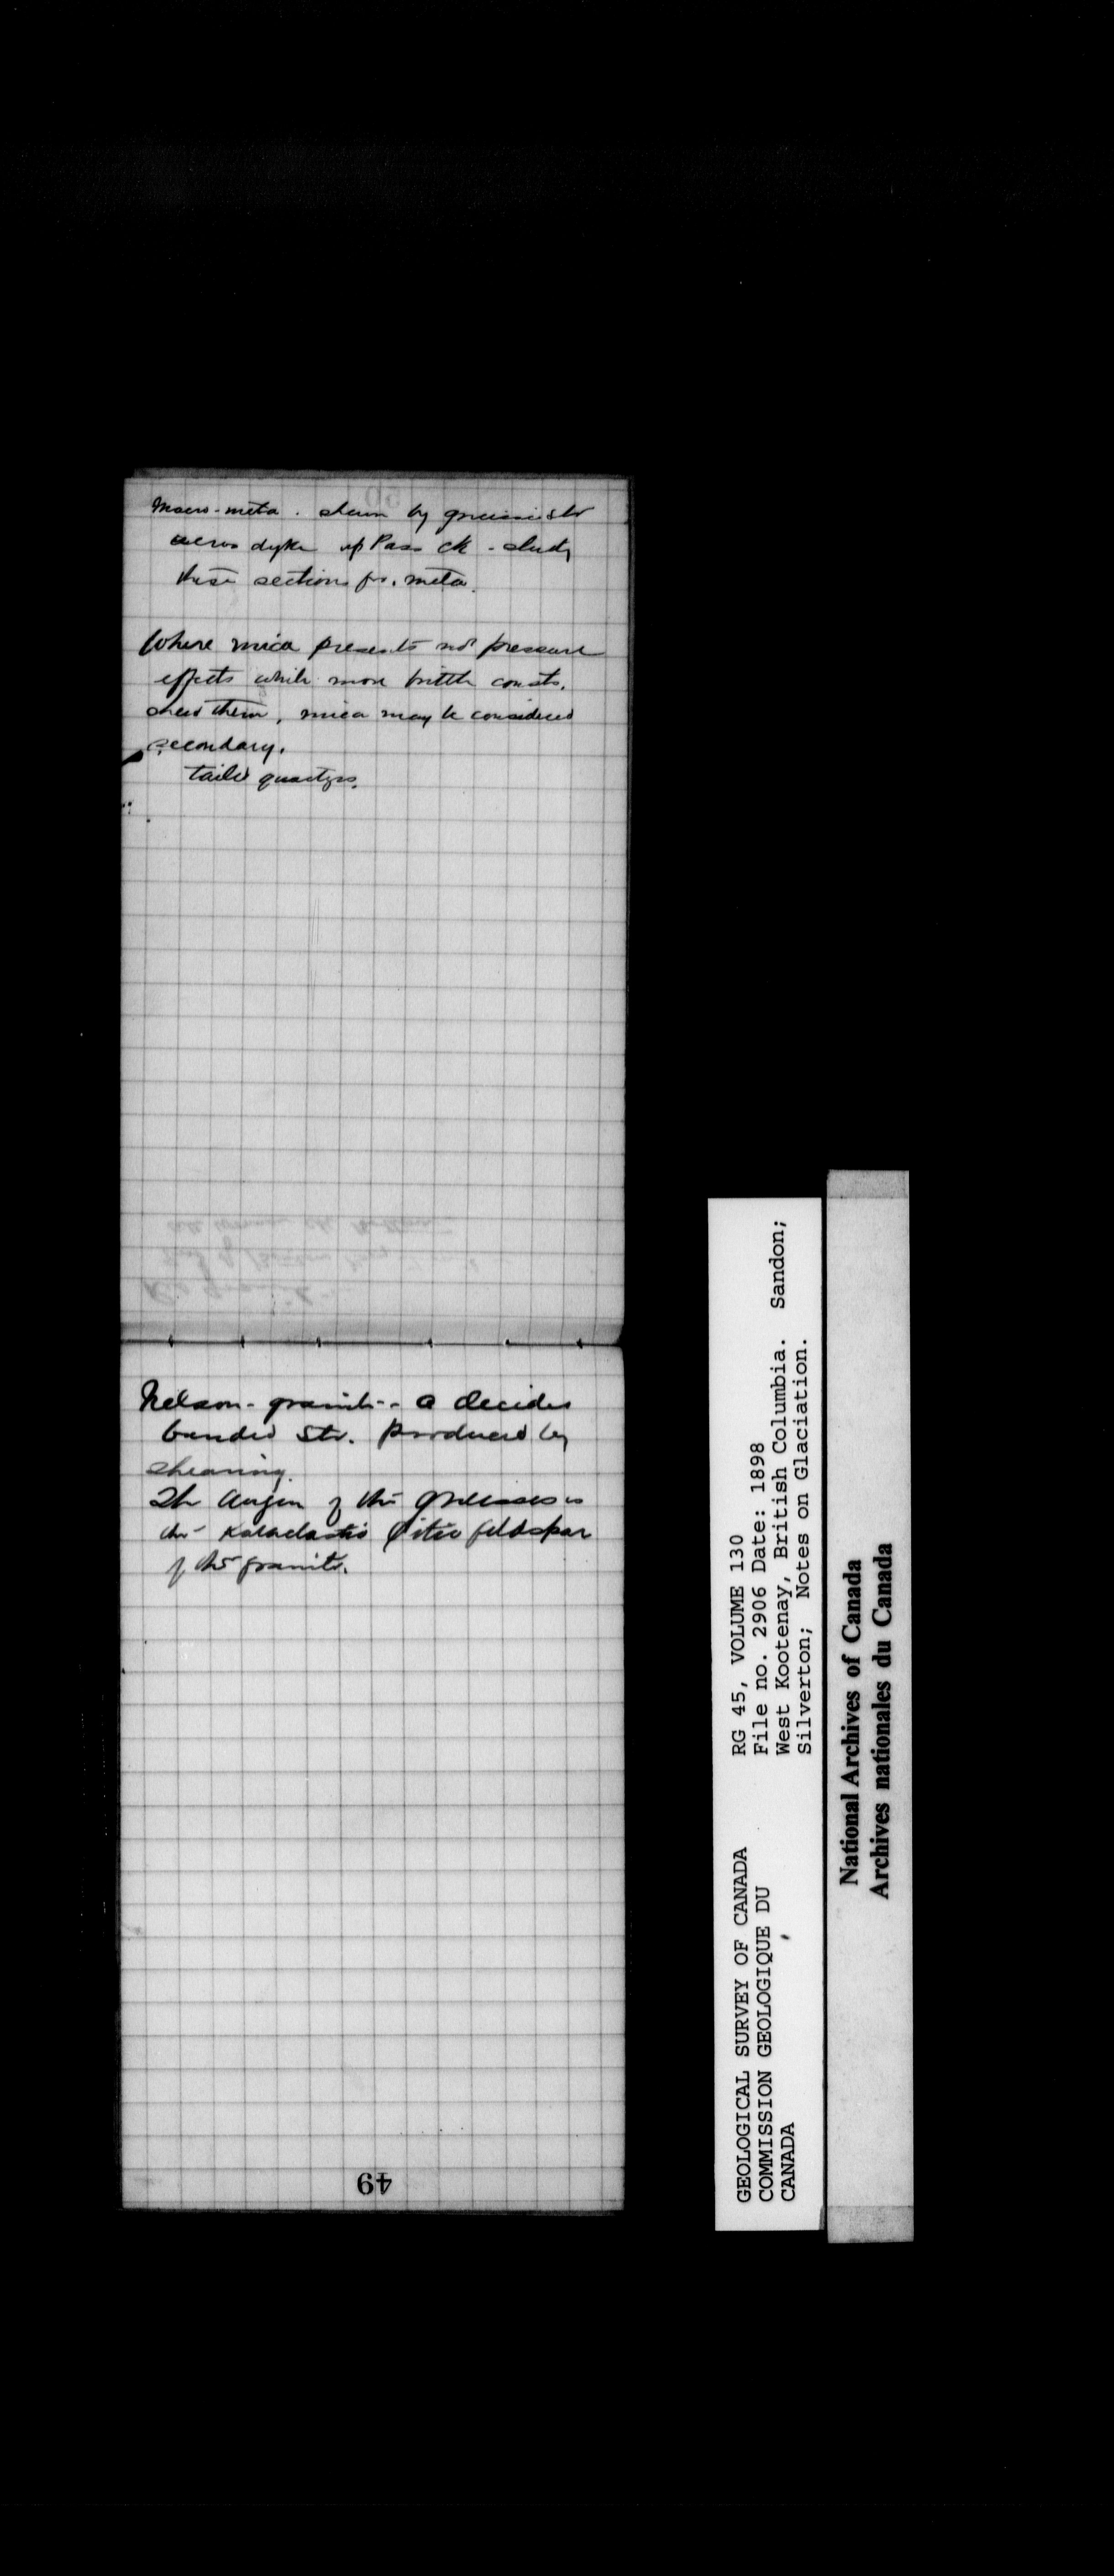 Macro-meta. shewn by gneissic str
across dyke up Pass Ck - study
these sections for meta.
Where mica presents no pressure
effects while more brittle consts.
shew them, mica may be considered
secondary.
tailed quartzes.
Nelson-granite - a decided
banded str. produced by
shearing.
The Augen of the gneisses is
the Kataclastic feldspar
of the granite.
49
GEOLOGICAL SURVEY OF CANADA
COMMISSION GEOLOGIQUE DU
CANADA
RG 45, VOLUME 130
File no. 2906 Date: 1898
West Kootenay, British Columbia. Sandon;
Silverton; Notes on Glaciation.
National Archives of Canada
Archives nationales du Canada